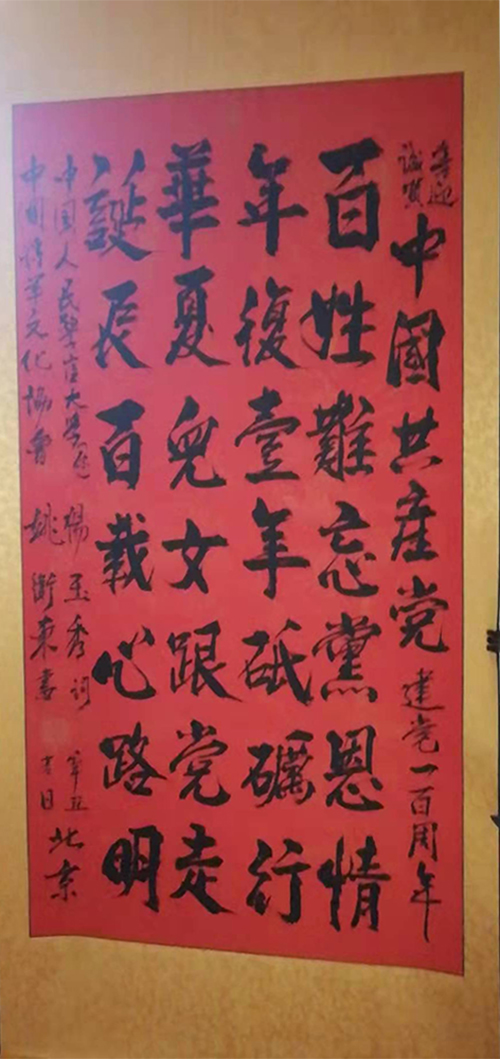 喜迎
诚贺
中國共産党建党一百周年
百姓難忘黨恩情
年復壹年砥礪行
華夏兒女跟党走
誕辰百载心路明
中国人民警官大学 楊玉秀词
中国将军文化協會 姚衛東書
辛丑
吉日
北京